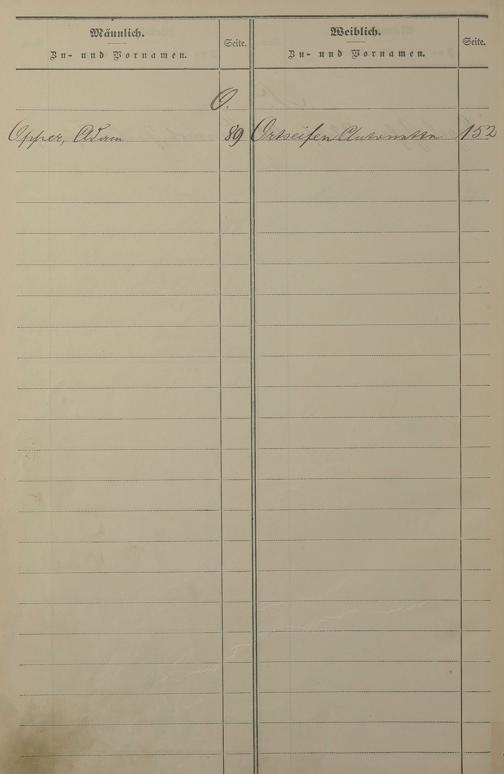 Männlich.
Zu- und Vornamen.
Seite.
Weiblich.
Zu- und Vornamen.
Seite.
O.
Opper, Adam 89
Ortseifen 152